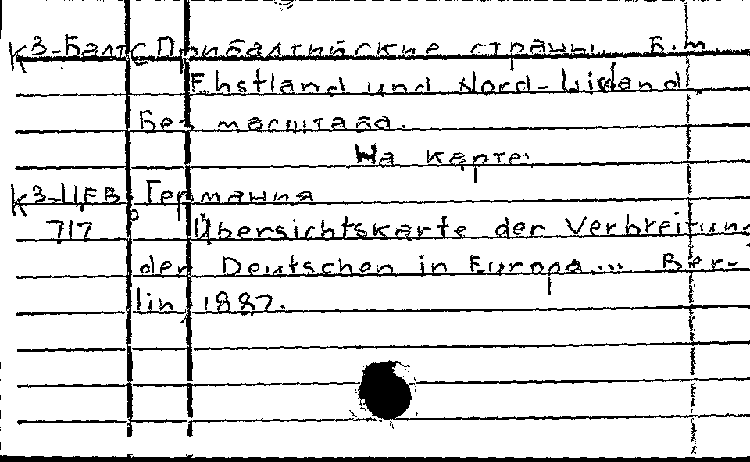 К3-Балт Прибалтийские страны. Б.м.
Ehstland und Nord-Livland.
Без масштаба.
На карте:
К3-ЦЕВ Германия
717 Übersichtskarte der Verbreitung
der Deutschen in Europa... Ber-
lin, 1887.